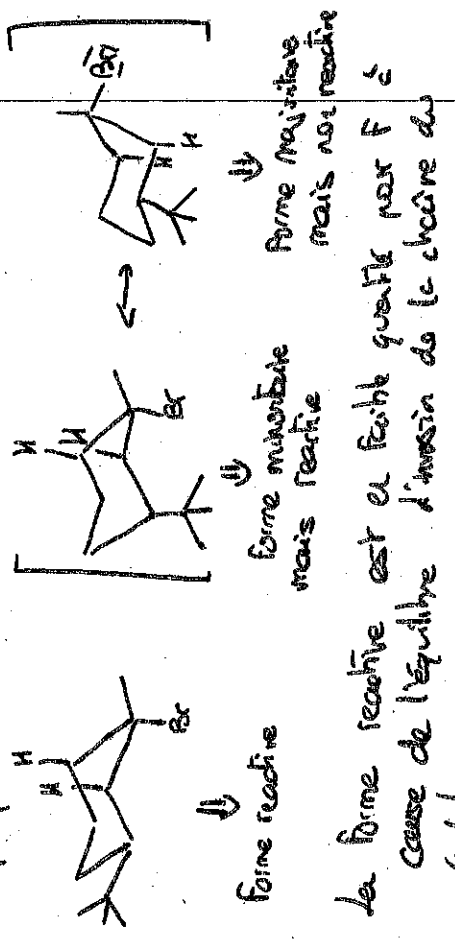 H
H
Br
Forme reactive
H
H
Br
Forme minoritaire
mais reactive
Br
H
H
Forme majoritaire
mais non reactive
La forme reactive est en faible quantité pour F à
cause de l'équilibre d'inversion de la chaine du